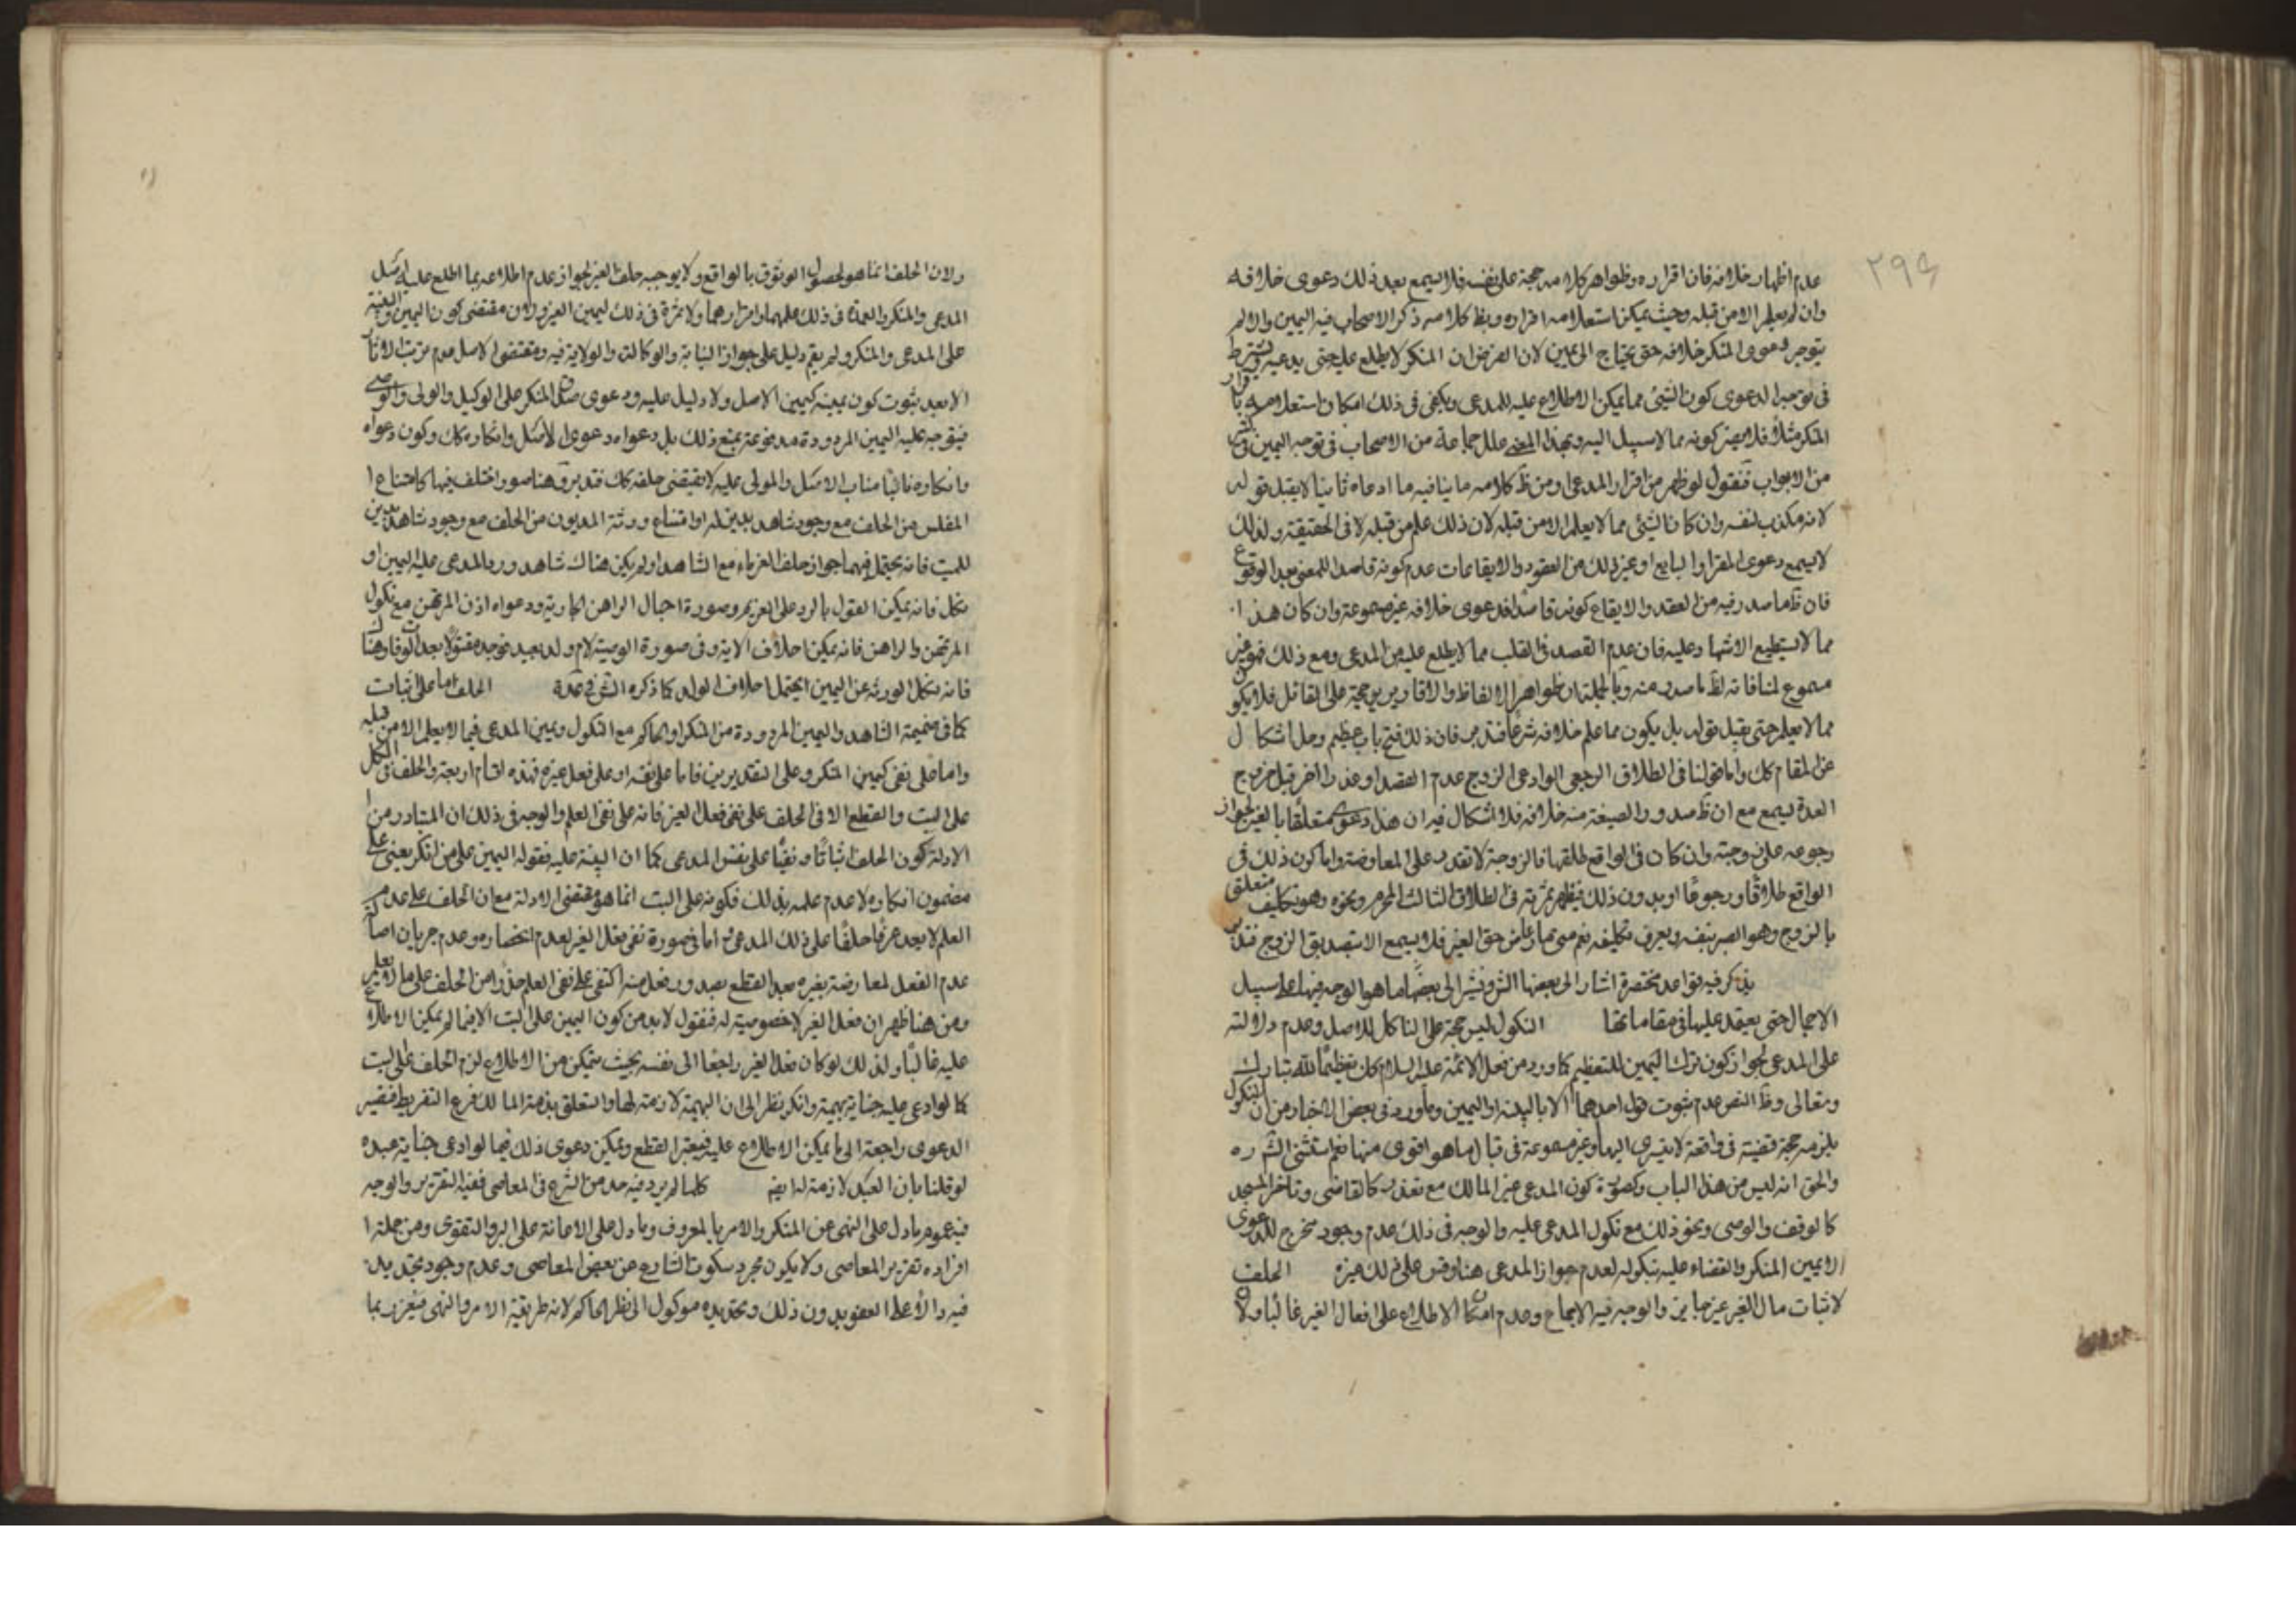 ٢٩٤
عدم اظهار خلافه فان اقراره وظواهر كلامه حجة على نفسه فلا يسمع بعد ذلك دعوى خلافه
وان لم يعلم الا من قبله وحيث يمكن استعلامه اقراره وبظ كلامه ذكر الاصحاب فيه اليمين والا لم
يتوجه دعوى المنكر خلافه حتى يحتاج الى يمين لان الفرض ان المنكر لا يطلع عليه حتى يدعيه ويشترط
فى توجه الدعوى كون الشئ مما يمكن الاطلاع عليه للمدعى ويكفى فى ذلك امكان استعلامه باقرار
المنكر مثلا فلا يضر كونه مما لا سبيل اليه وبهذا المعنى علل جماعة من الاصحاب فى توجه اليمين
من الابواب فنقول لو ظهر من اقرار المدعى او من ظ كلامه ما ينافيه ما ادعاه ثانيا لا يقبل قوله
لانه مكذب لنفسه وان كان الشئ مما لا يعلم الا من قبله لان ذلك علم من قبله لا فى الحقيقة ولذلك
لا يسمع دعوى المقر او البايع او غير ذلك من العقود والايقاعات عدم كونه قاصدا للمعنى بعد الوقوع
فان ظ ما صدر فيه من العقد والايقاع كونه قاصدا فدعوى خلافه غير مسموعة وان كان هذا
مما لا يستطيع الاشهاد عليه فان عدم القصد فى القلب مما لا يطلع عليه المدعى ومع ذلك فهو غير
مسموع لمنافاته لظ ما صدر منه وبالجملة ان ظواهر الالفاظ والاقارير حجة على القائل فلا يكون
مما لا يعلم حتى يقبل قوله بل يكون مما علم خلافه شرعا فتدبر فان ذلك فتح باب عظيم وحل اشكال
عن المقام كك واما قولنا فى الطلاق الرجعى لو ادعى الزوج عدم القصد او عذرا اخر قبل خروج
العدة يسمع مع ان ظ صدور الصيغة منه خلافه فلا اشكال فيه ان هذا دعوى متعلقا بالغير لجواز
رجوعه على زوجته وان كان فى الواقع طلقها فالزوجة لا تقدر على المعاوضة واما كون ذلك فى
الواقع طلاقا ورجوعا او بدون ذلك فيظهر ثمرته فى الطلاق الثالث المحرم ونحوه وهو تكليف متعلق
بالزوج وهو البصير بنفسه ويعرف تكليفه نعم متى تعارض من حق الغير فلا يسمع الا بتصديق الزوج فتدبر
يذكر فيه قواعد مختصرة اشار الى بعضها الش ونشير الى بعضها ما هو الوجه فيها على سبيل
الاجمال حتى يعتمد عليها فى مقاماتها النكول ليس حجة على الناكل للاصل وعدم دلالته
على المدعى لجواز كون ترك اليمين للتعظيم كما ورد من فعل الائمة عليهم السلام كان تعظيما لله تبارك
وتعالى وظ النص عدم ثبوت قول احدهما الا بالبينة او اليمين وما ورد فى بعض الاخبار من ان النكول
يلزمه حجة قضية فى واقعة لا يتسرى اليها وغير مسموعة فى قبال ما هو اقوى منها نعم استثنى الش ره
والحق انه ليس من هذا الباب وكصورة كون المدعى غير المالك مع تعذره كالقاضى وناظر المسجد
كالوقف والوصى ونحو ذلك مع نكول المدعى عليه والوجه فى ذلك عدم وجود مخرج للدعوى
الا يمين المنكر والقضاء عليه بنكوله لعدم جواز المدعى هنا وقس على ذلك غيره الحلف
لاثبات مال الغير غير جايز والوجه فيه الاجماع وعدم امكان الاطلاع على افعال الغير غالبا ولا
ولان الحلف انما هو لحصول الوثوق بالواقع ولا يوجبه حلف الغير لجواز عدم اطلاعه بما اطلع عليه
المدعى والمنكر والعمدة فى ذلك علمهما واقرارهما ولا ثمرة فى ذلك ليمين الغير ولان مقتضى كون اليمين والبينة
على المدعى والمنكر ولم يقم دليل على جواز النيابة والوكالة والولاية فيه ومقتضى الاصل عدم ترتب الاثار
الا بعد ثبوت كون يمينه كيمين الاصل ولا دليل عليه ودعوى صدق المنكر على الوكيل والولى والوصى
فيتوجه عليه اليمين المردودة مدفوعة بمنع ذلك بل دعواه دعوى الاصل وانكاره كك وكون دعواه
وانكاره نائبا مناب الاصل والمولى عليه لا يقتضى حلفه كك فتدبر وهنا صور اختلف فيها كامتناع
المفلس من الحلف مع وجود شاهد بدين له او امتناع ورثة المديون من الحلف مع وجود شاهد بدين
للميت فانه يحتمل فيهما جواز حلف الغرماء مع الشاهد او لم يكن هناك شاهد ورد المدعى عليه اليمين او
نكل فانه يمكن القول بالرد على الغريم وصورة احبال الراهن الجارية ودعواه اذن المرتهن مع نكول
المرتهن والراهن فانه يمكن احلاف الامة وفى صورة الوصية لام ولد بعبد فوجد مقتولا بعد الوفاة وهناك
فانه نكل الورثه عن اليمين احتمل احلاف الولد كما ذكره الش فى الحلف اما على اثبات
كما فى ضميمة الشاهد واليمين المردودة من المنكر او الحاكم مع النكول ويمين المدعى فيما لا يعلم الا من قبله
واما على نفى كيمين المنكر وعلى التقديرين فاما على نفسه او على فعل غيره فهذه اقسام اربعة والحلف فى الكل
على البت والقطع الا فى الحلف على نفى فعل الغير فانه على نفى العلم والوجه فى ذلك ان المتبادر من
الادلة كون الحلف اثباتا ونفيا على نفس المدعى كما ان البينة عليه فقوله اليمين على من انكر يعنى على
مضمون انكاره لا عدم علمه بذلك فكونه على البت انما هو مقتضى الادلة مع ان الحلف على عدم
العلم لا يعد عرفا حلفا على ذلك المدعى اما فى صورة نفى فعل الغير لعدم انحصاره وعدم جريان اصالة
عدم الفعل لمعارضة بغيره بعد القطع بصدور فعل منه اكتفى على نفى العلم حذرا من الحلف على ما لا يعلم
ومن هنا ظهر ان فعل الغير لا خصوصية له فنقول لا بد من كون اليمين على البت الا فيما لم يمكن الاطلاع
عليه غالبا ولذلك لو كان فعل الغير راجعا الى نفسه بحيث يتمكن من الاطلاع لزم الحلف على البت
كما لو ادعى عليه جناية بهيمة وانكر نظرا الى ان البهيمة لا ذمة لها والتعلق بذمة المالك فرع التفريط فتصير
الدعوى راجعة الى ما يمكن الاطلاع عليه فيعتبر القطع ويمكن دعوى ذلك فيما لو ادعى جناية عبده
لو قلنا بان العبد لا ذمة له ايضا كلما لم يرد فيه حد من الشرع فى المعاصى ففيه التعزير والوجه
فيه عموم ما دل على النهى عن المنكر والامر بالمعروف وما دل على الاعانة على البر والتقوى ومن جملة
افراده تعزير المعاصى ولا يكون مجرد سكوت الشارع عن بعض المعاصى وعدم وجود تحديد
فيه دالا على العفو بدون ذلك وتحديده موكول الى نظر الحاكم لانه طريقة الامر والنهى فيعزر بما